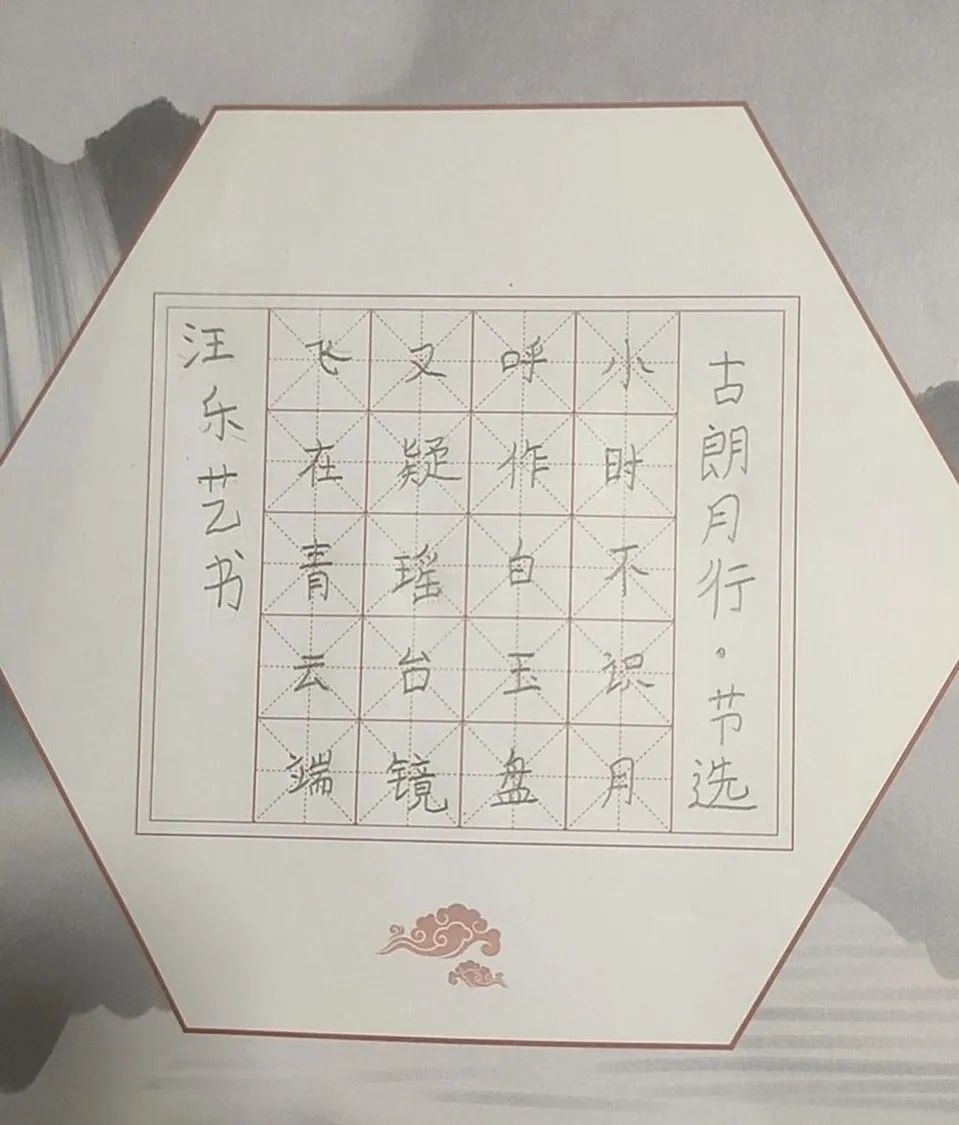 古朗月行。节选
小时不识月
呼作白玉盘
又疑瑶台镜
飞在青云端
汪乐艺书